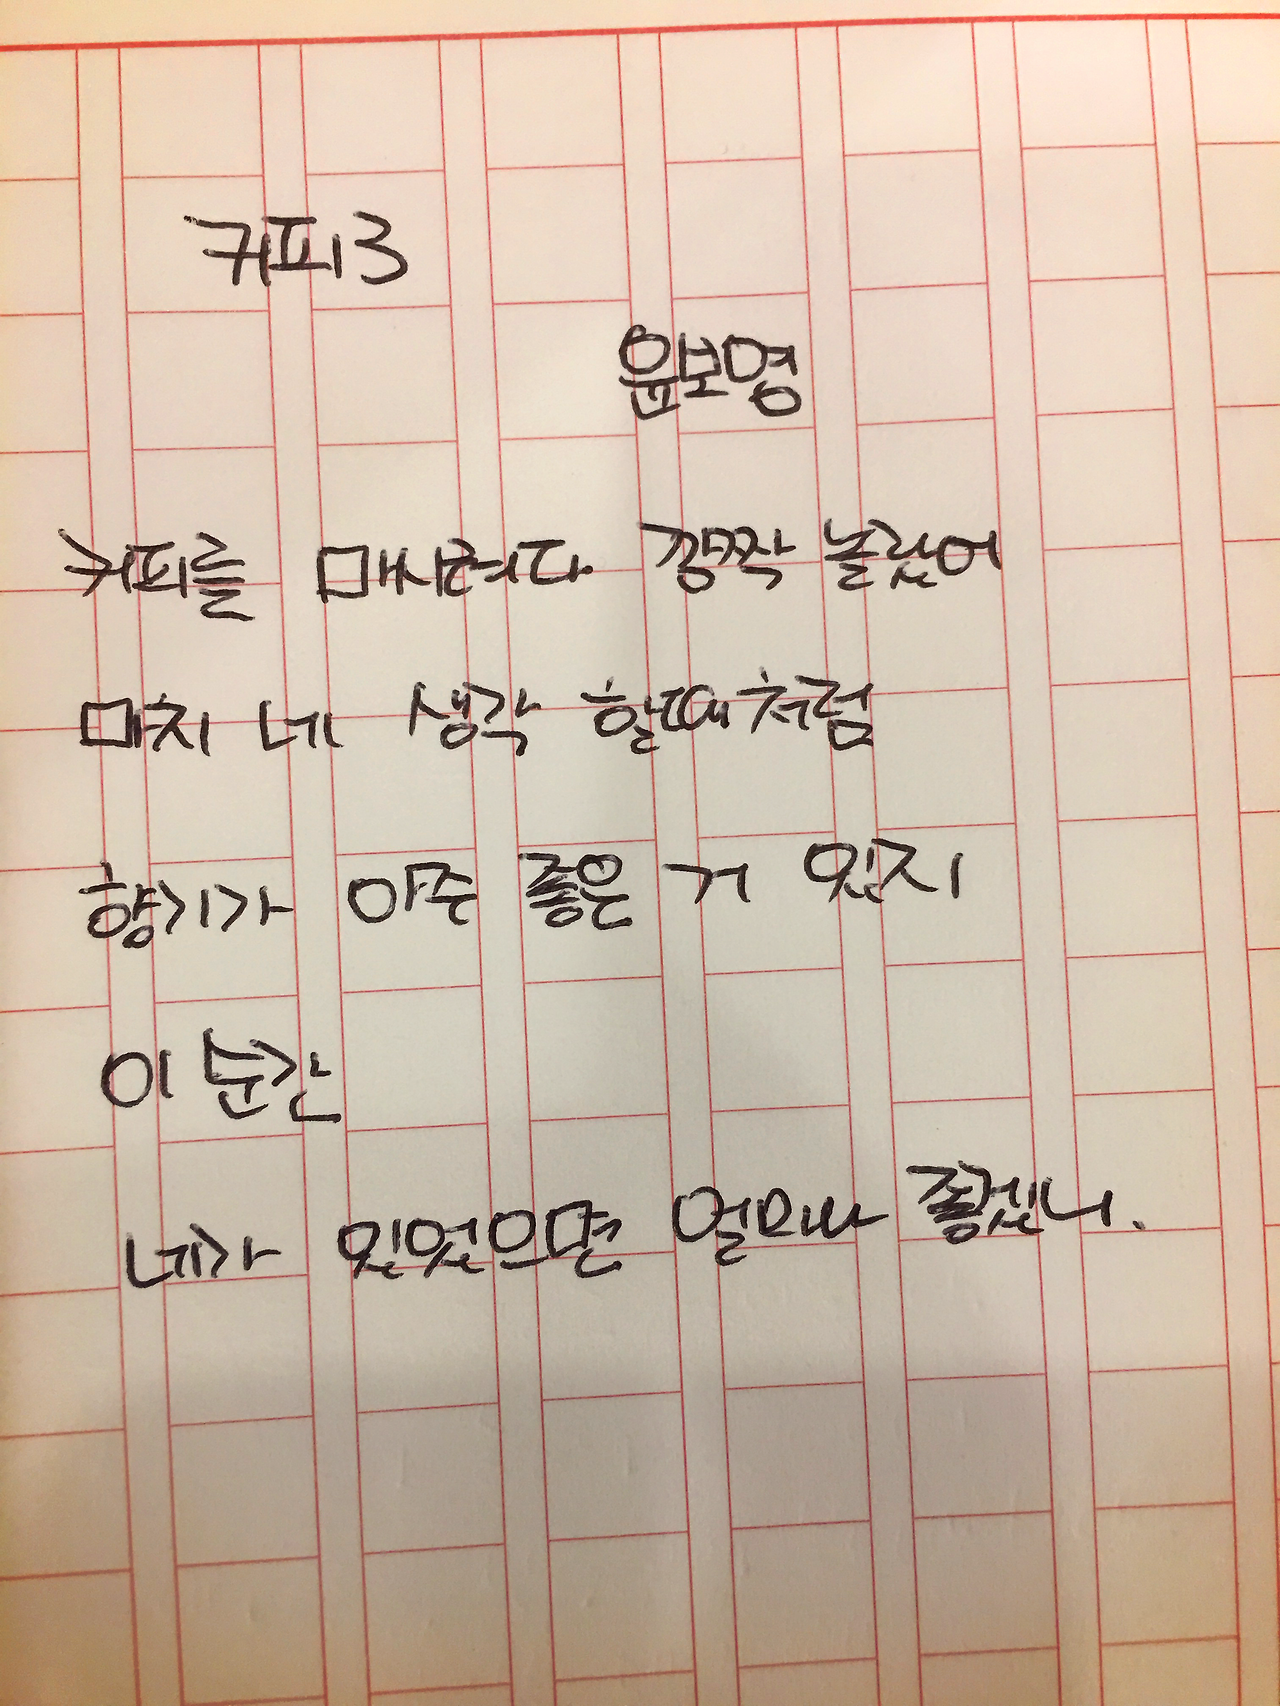 커피3
윤보영
커피를 마시려다 깜짝 놀랐어
마치 네 생각 할때처럼
향기가 아주 좋은 거 있지
이 순간
네가 있었으면 얼마나 좋겠니.